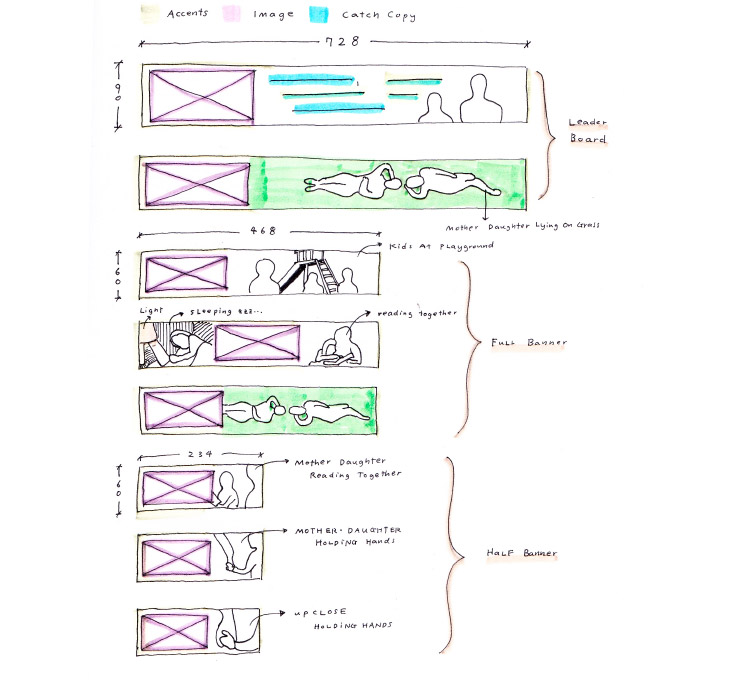 Accents
Image
Catch Copy
728
90
Leader
Board
Mother Daughter Lying On Grass
468
60
Kids At Playground
Light
Sleeping zzz...
reading together
Full Banner
234
60
Mother Daughter
Reading Together
MOTHER-DAUGHTER
HOLDING Hands
Half Banner
up CLOSE
HOLDING HANDS